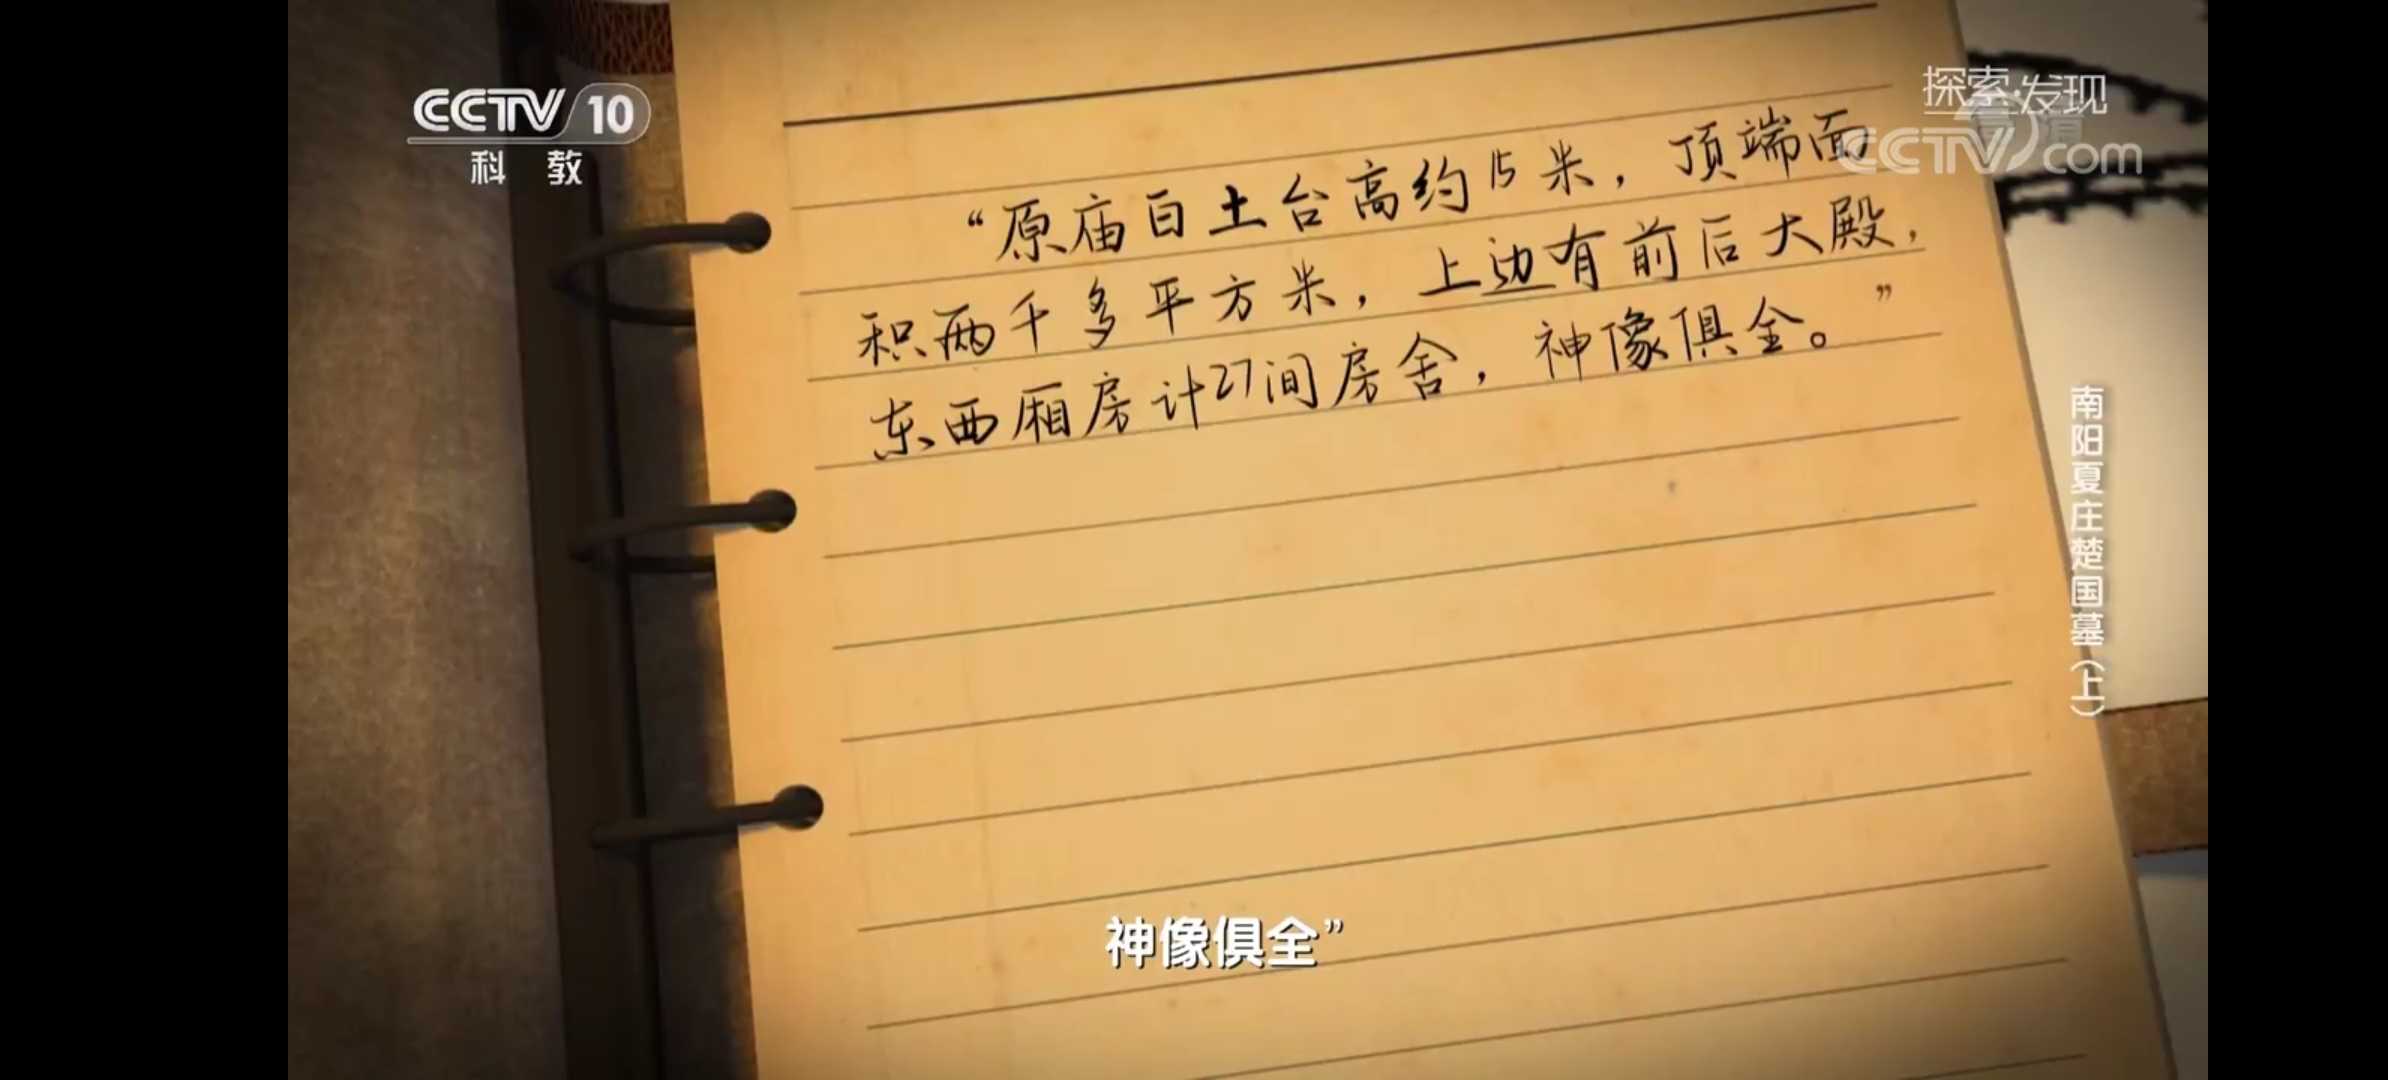 CCTV 10
科 教
探索·发现
高清
CCTV com
“原庙自土台高约15米，顶端面
积两千多平方米，上边有前后大殿，
东西厢房计27间房舍，神像俱全。”
南阳夏庄楚国墓（上）
神像俱全”